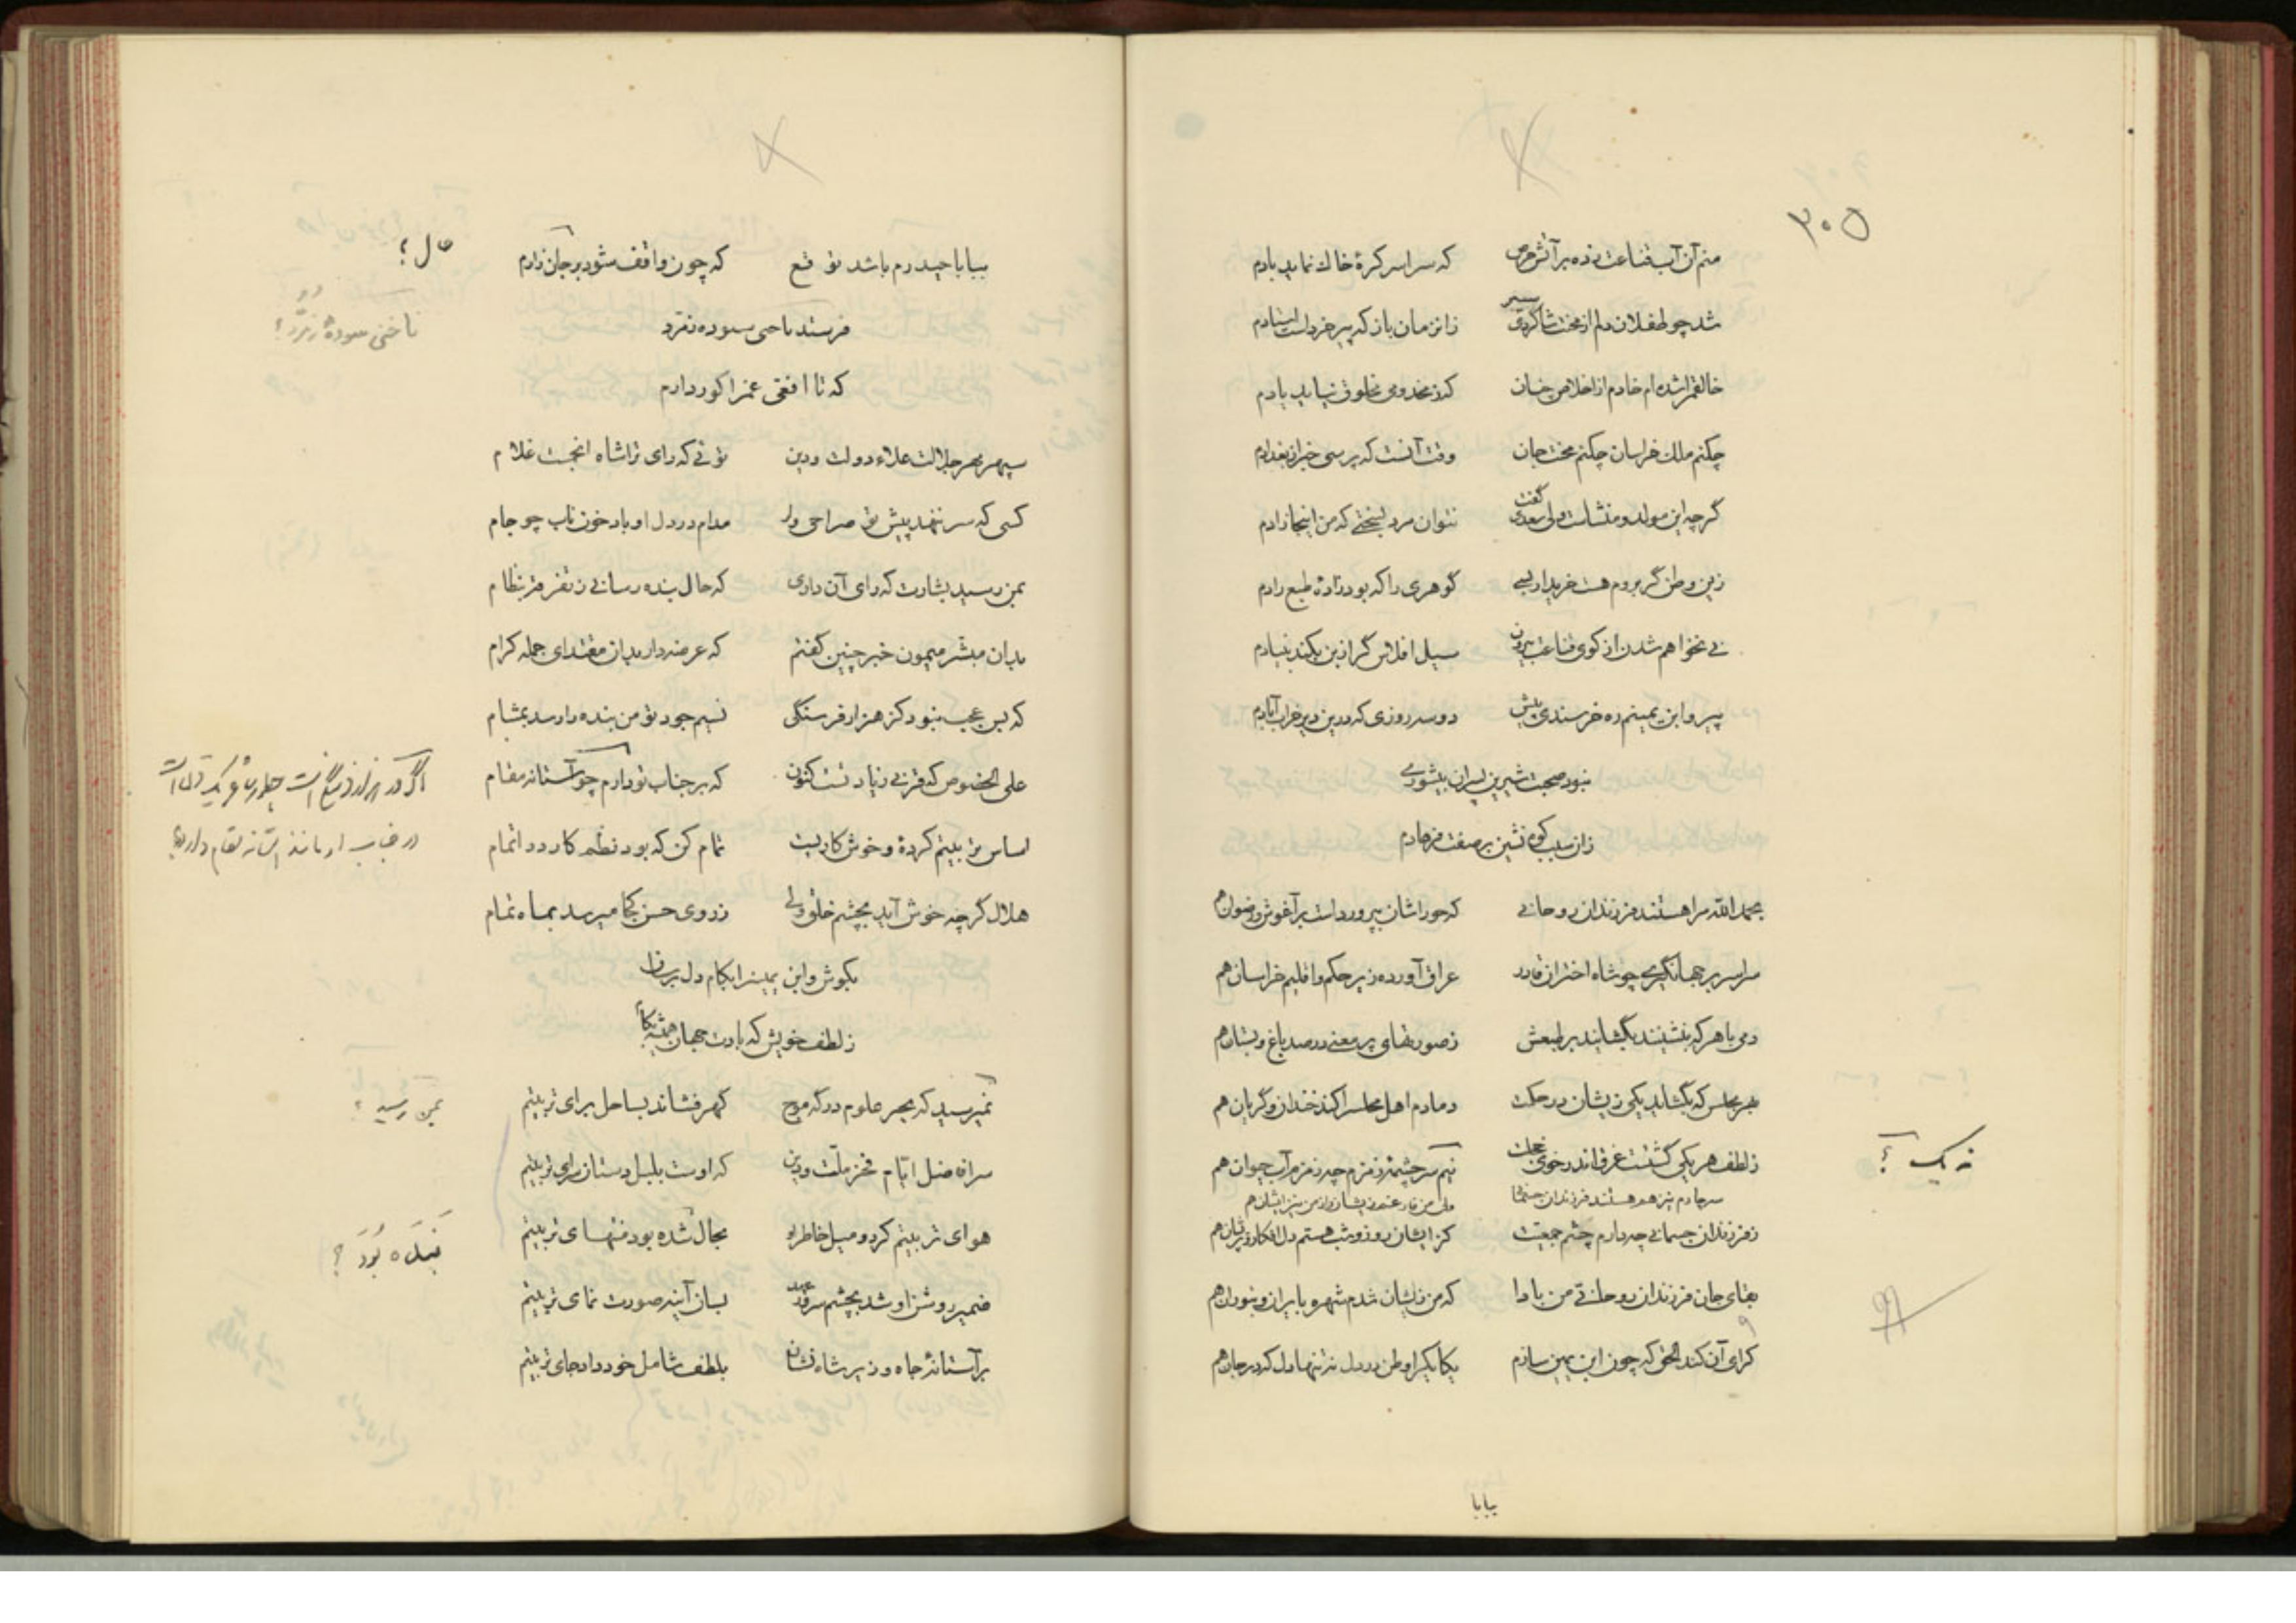 ۳۰۵
منم آن آب قناعت زده بر آتش حرص که سراسر کرهٔ خاک نماید بادم
شد چو طفلان دلم از محنت شاگردی سیر زانزمان باز که پیر خرد است استادم
خالقم را شده ام خادم از اخلاص چنان کز مخدومی مخلوق نیاید یادم
چکنم ملک خراسان چکنم محنت جان وقت آنست که پرسی خبر از بغدادم
گرچه این مولد و منشاست ولی سعدی گفت نتوان مرد بسختی که من اینجا زادم
زین وطن گر بروم هست خریدار بسی گوهری را که بود زادهٔ طبع رادم
نی نخواهم شدن از کوی قناعت بیرون سیل افلاس گر از بن بکند بنیادم
پیرو ابن یمینم ره خرسندی پیش دو سه روزی که درین دیر خراب آبادم
نبود صحبت شیرین پسران بیشوری
زان سبب کوه نشین بر صفت فرهادم
بحمد الله مرا هستند فرزندان روحانی که حوراشان بپرورد است بر آغوش و رضوان هم
سراسر بر جهانگیری چو شاه اختران قادر عراق آورده زیر حکم و اقلیم خراسان هم
دمی با هر که بنشینند بگشایند بر طبعش ز صورتهای پر معنی در صد باغ و بستان هم
بهر مجلس که بگشاید یکی زیشان در حکمت دمادم اهل مجلس را کند خندان و گریان هم
ز لطف هر یکی گشتست غرق اندر خوی خجلت نیم سر چشمهٔ زمزم چه زمزم آب حیوان هم
نه یک ؟
ز فرزندان جسمانی چه دارم چشم جمعیت کز ایشان روز و شب هستم دل افکار و پریشان هم
بقای جان فرزندان روحانی من بادا که من زیشان شدم شهره بایران و بتوران هم
کرای آن کند الحق که چون ابن یمین سازم یکایک را وطن در دل نه تنها دل که در جان هم
بیابا
بیا با حیدرم باشد توقع که چون واقف شود بر جان زارم
حال ؟
فرستد ناخنی سوده زمرد
ناخنی سودهٔ زمرّد ؟
که تا افعی غم را کور دارم
سپهر مهر جلالت علاء دولت و دین توئی که رای ترا شاه انجمست غلام
کسی که سر ننهد پیش تو صراحی وار مدام در دل او باد خون ناب چو جام
بمن رسید بشارت که رای آن داری که حال بنده رسانی ز تفرقه بنظام
بدان مبشر میمون خبر چنین گفتم که عرضه دار بدان مقتدای جمله کرام
که بس عجب نبود کز هزار فرسنگی نسیم جود تو من بنده را رسد بمشام
علی الخصوص که قربی زیادتست کنون که بر جناب تو دارم چو آستانه مقام
اساس تربیتم کردهٔ و خوش کاریست تمام کن که بود نظم کار در اتمام
هلال گرچه خوش آید بچشم خلق ولی ز روی حسن کجا میرسد بماه تمام
بکوش و ابن یمین را بکام دل برسان
ز لطف خویش که بادت جهان همیشه بکام
نمیرسید که بحر علوم در گه موج گهر فشاند بساحل برای تربیتم
بمن رسید ؟
سر افاضل ایام فخر ملت و دین که اوست بلبل دستان سرای تربیتم
هوای تربیتم کرد و میل خاطر او بحال شده بود منتهای تربیتم
ضمیر روشن او شد بچشم سر و خرد بسان آینه صورت نمای تربیتم
بر آستانهٔ جاه وزیر شاه نشان بلطف شامل خود داد جای تربیتم